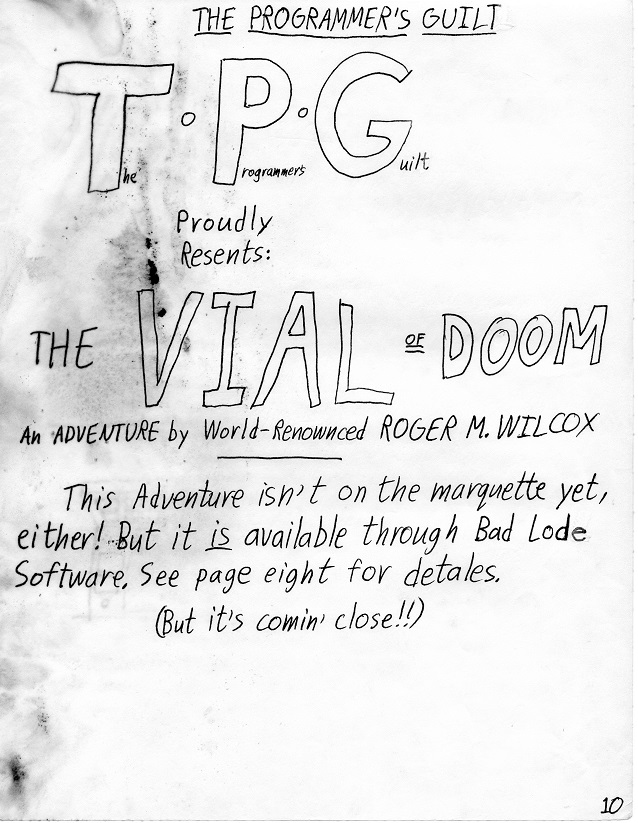 THE PROGRAMMER'S GUILT
T·P·G
The Programmer's Guilt
Proudly
Resents:
THE VIAL OF DOOM
An ADVENTURE by World-Renownced ROGER M. WILCOX
This Adventure isn't on the marquette yet,
either! But it is available through Bad Lode
Software. See page eight for detales.
(But it's comin' close!!)
10